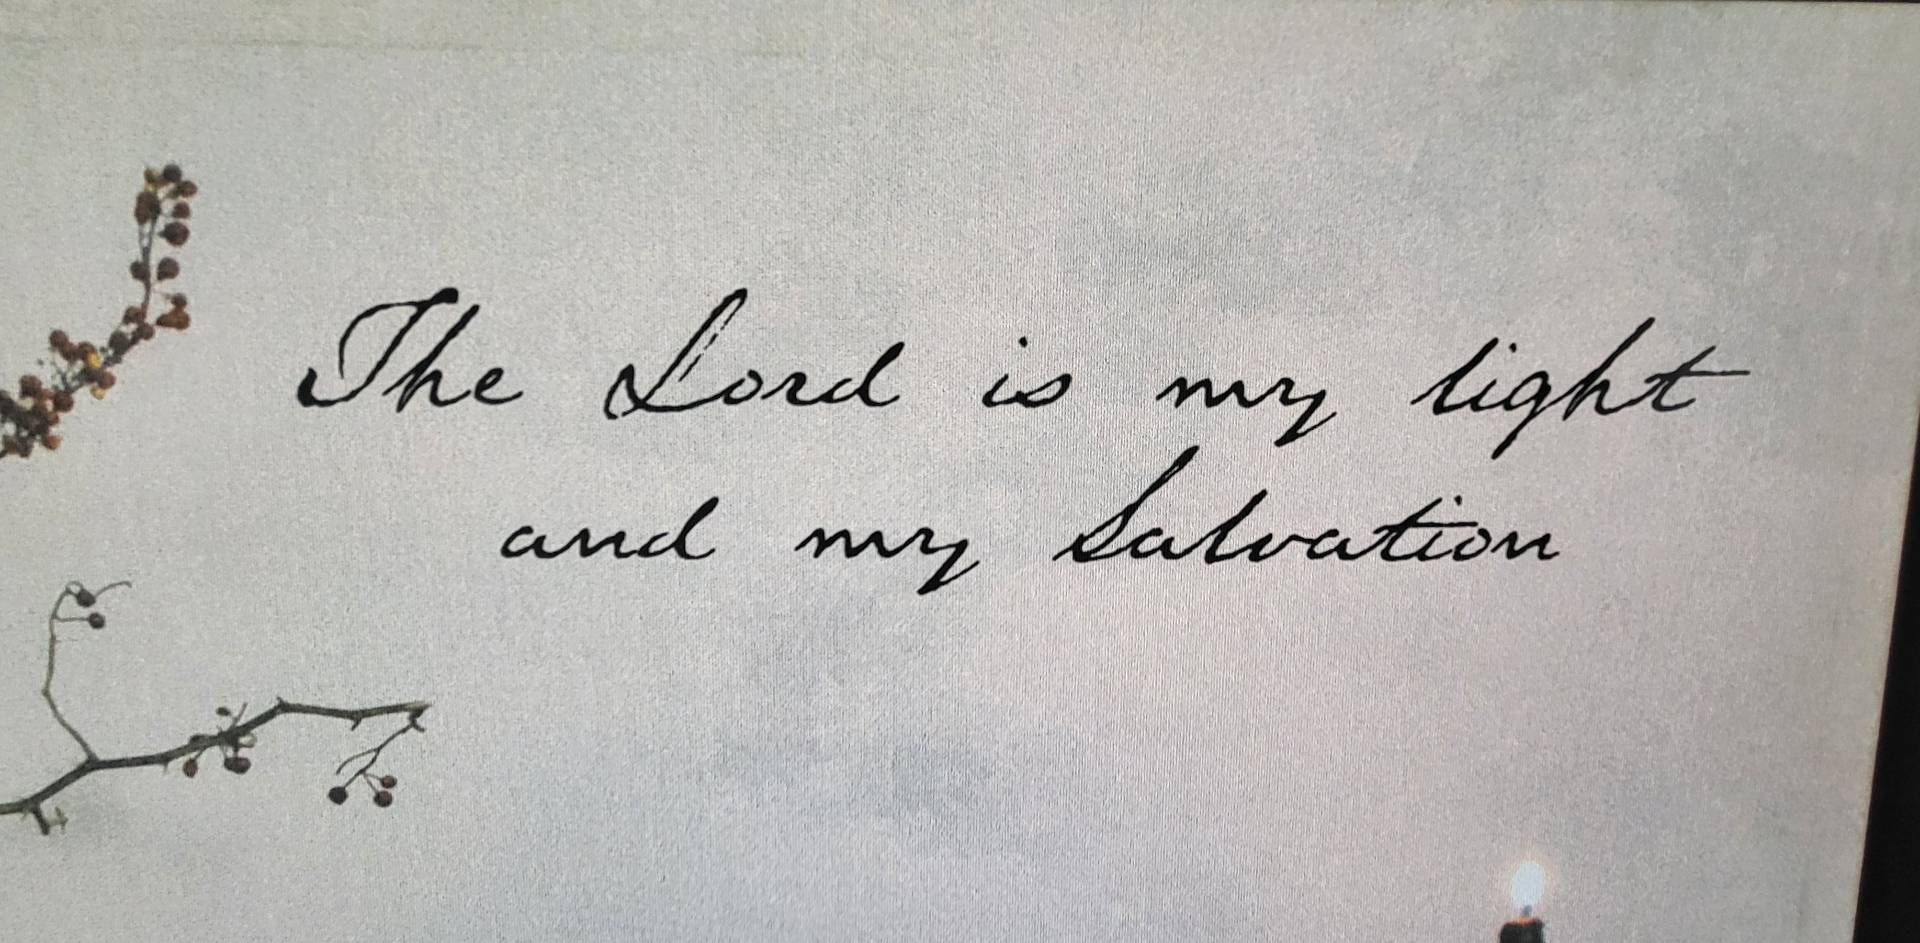 The Lord is my light
and my Salvation